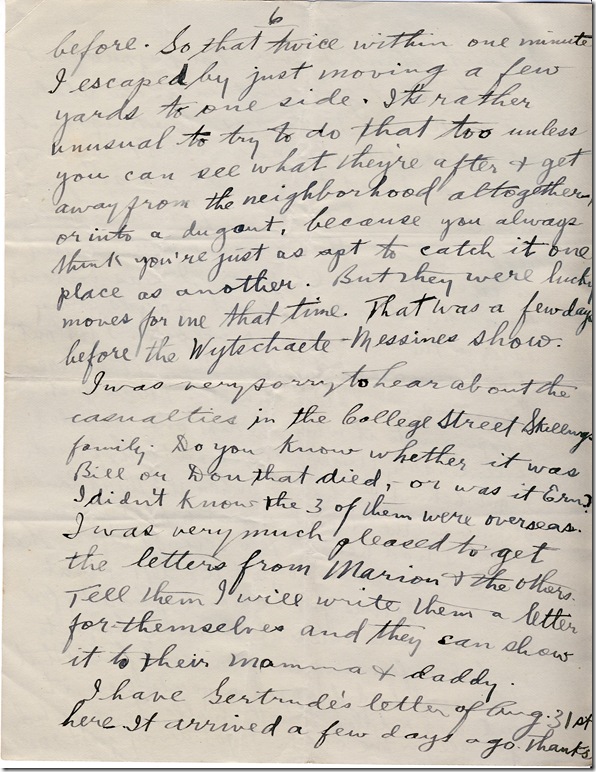 6
before. So that twice within one minute
I escaped by just moving a few
yards to one side. It's rather
unusual to try to do that too unless
you can see what they're after & get
away from the neighborhood altogether,
or into a dugout, because you always
think you're just as apt to catch it one
place as another. But they were lucky
moves for me that time. That was a few days
before the Wytschaete-Messines show.
I was very sorry to hear about the
casualties in the College Street Skellings
family. Do you know whether it was
Bill or Don that died, - or was it Ern?
I didn't know the 3 of them were overseas.
I was very much pleased to get
the letters from Marion & the others.
Tell them I will write them a letter
for themselves and they can show
it to their mamma & daddy.
I have Gertrude's letter of Aug. 31st
here. It arrived a few days ago. Thanks